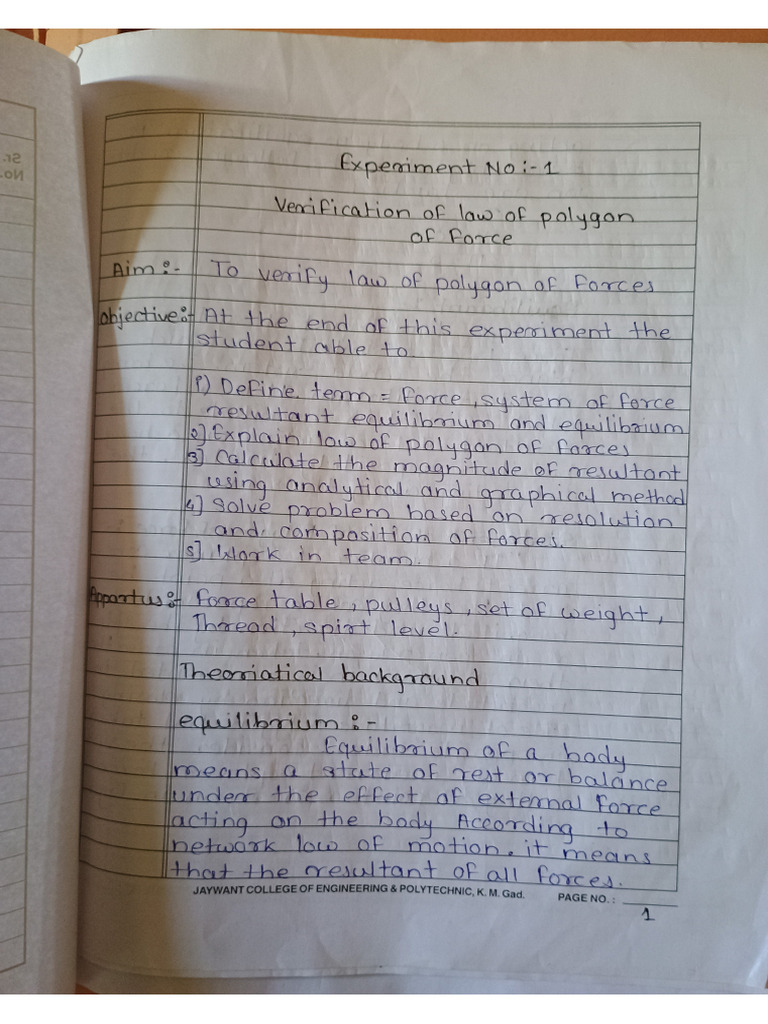 Sr.
No.
Experiment No:- 1
Verification of law of polygon
of force
Aim:- To verify law of polygon of Forces
objective:- At the end of this experiment the
student able to
1) Define term = force, system of force
resultant equilibrium and equilibrium
2] Explain law of polygon of forces
3] Calculate the magnitude of resultant
using analytical and graphical method
4] Solve problem based on resolution
and composition of forces.
5] Work in team.
Appartus:- force table, pulleys, set of weight,
Thread, spirt level.
Theoriatical background
equilibrium :-
Equilibrium of a body
means a state of rest or balance
under the effect of external force
acting on the body According to
network low of motion, it means
that the resultant of all forces.
JAYWANT COLLEGE OF ENGINEERING & POLYTECHNIC, K. M. Gad. PAGE NO. :
1